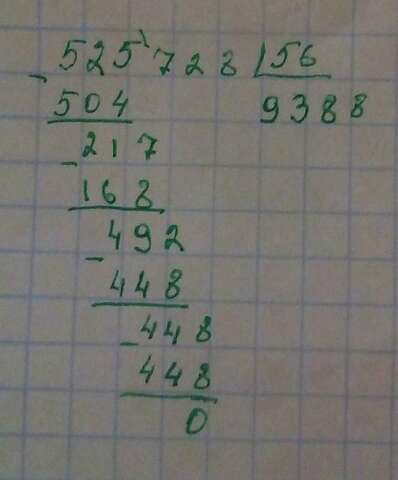 525'728 56
504 9388
- 217
168
- 492
448
- 448
448
0